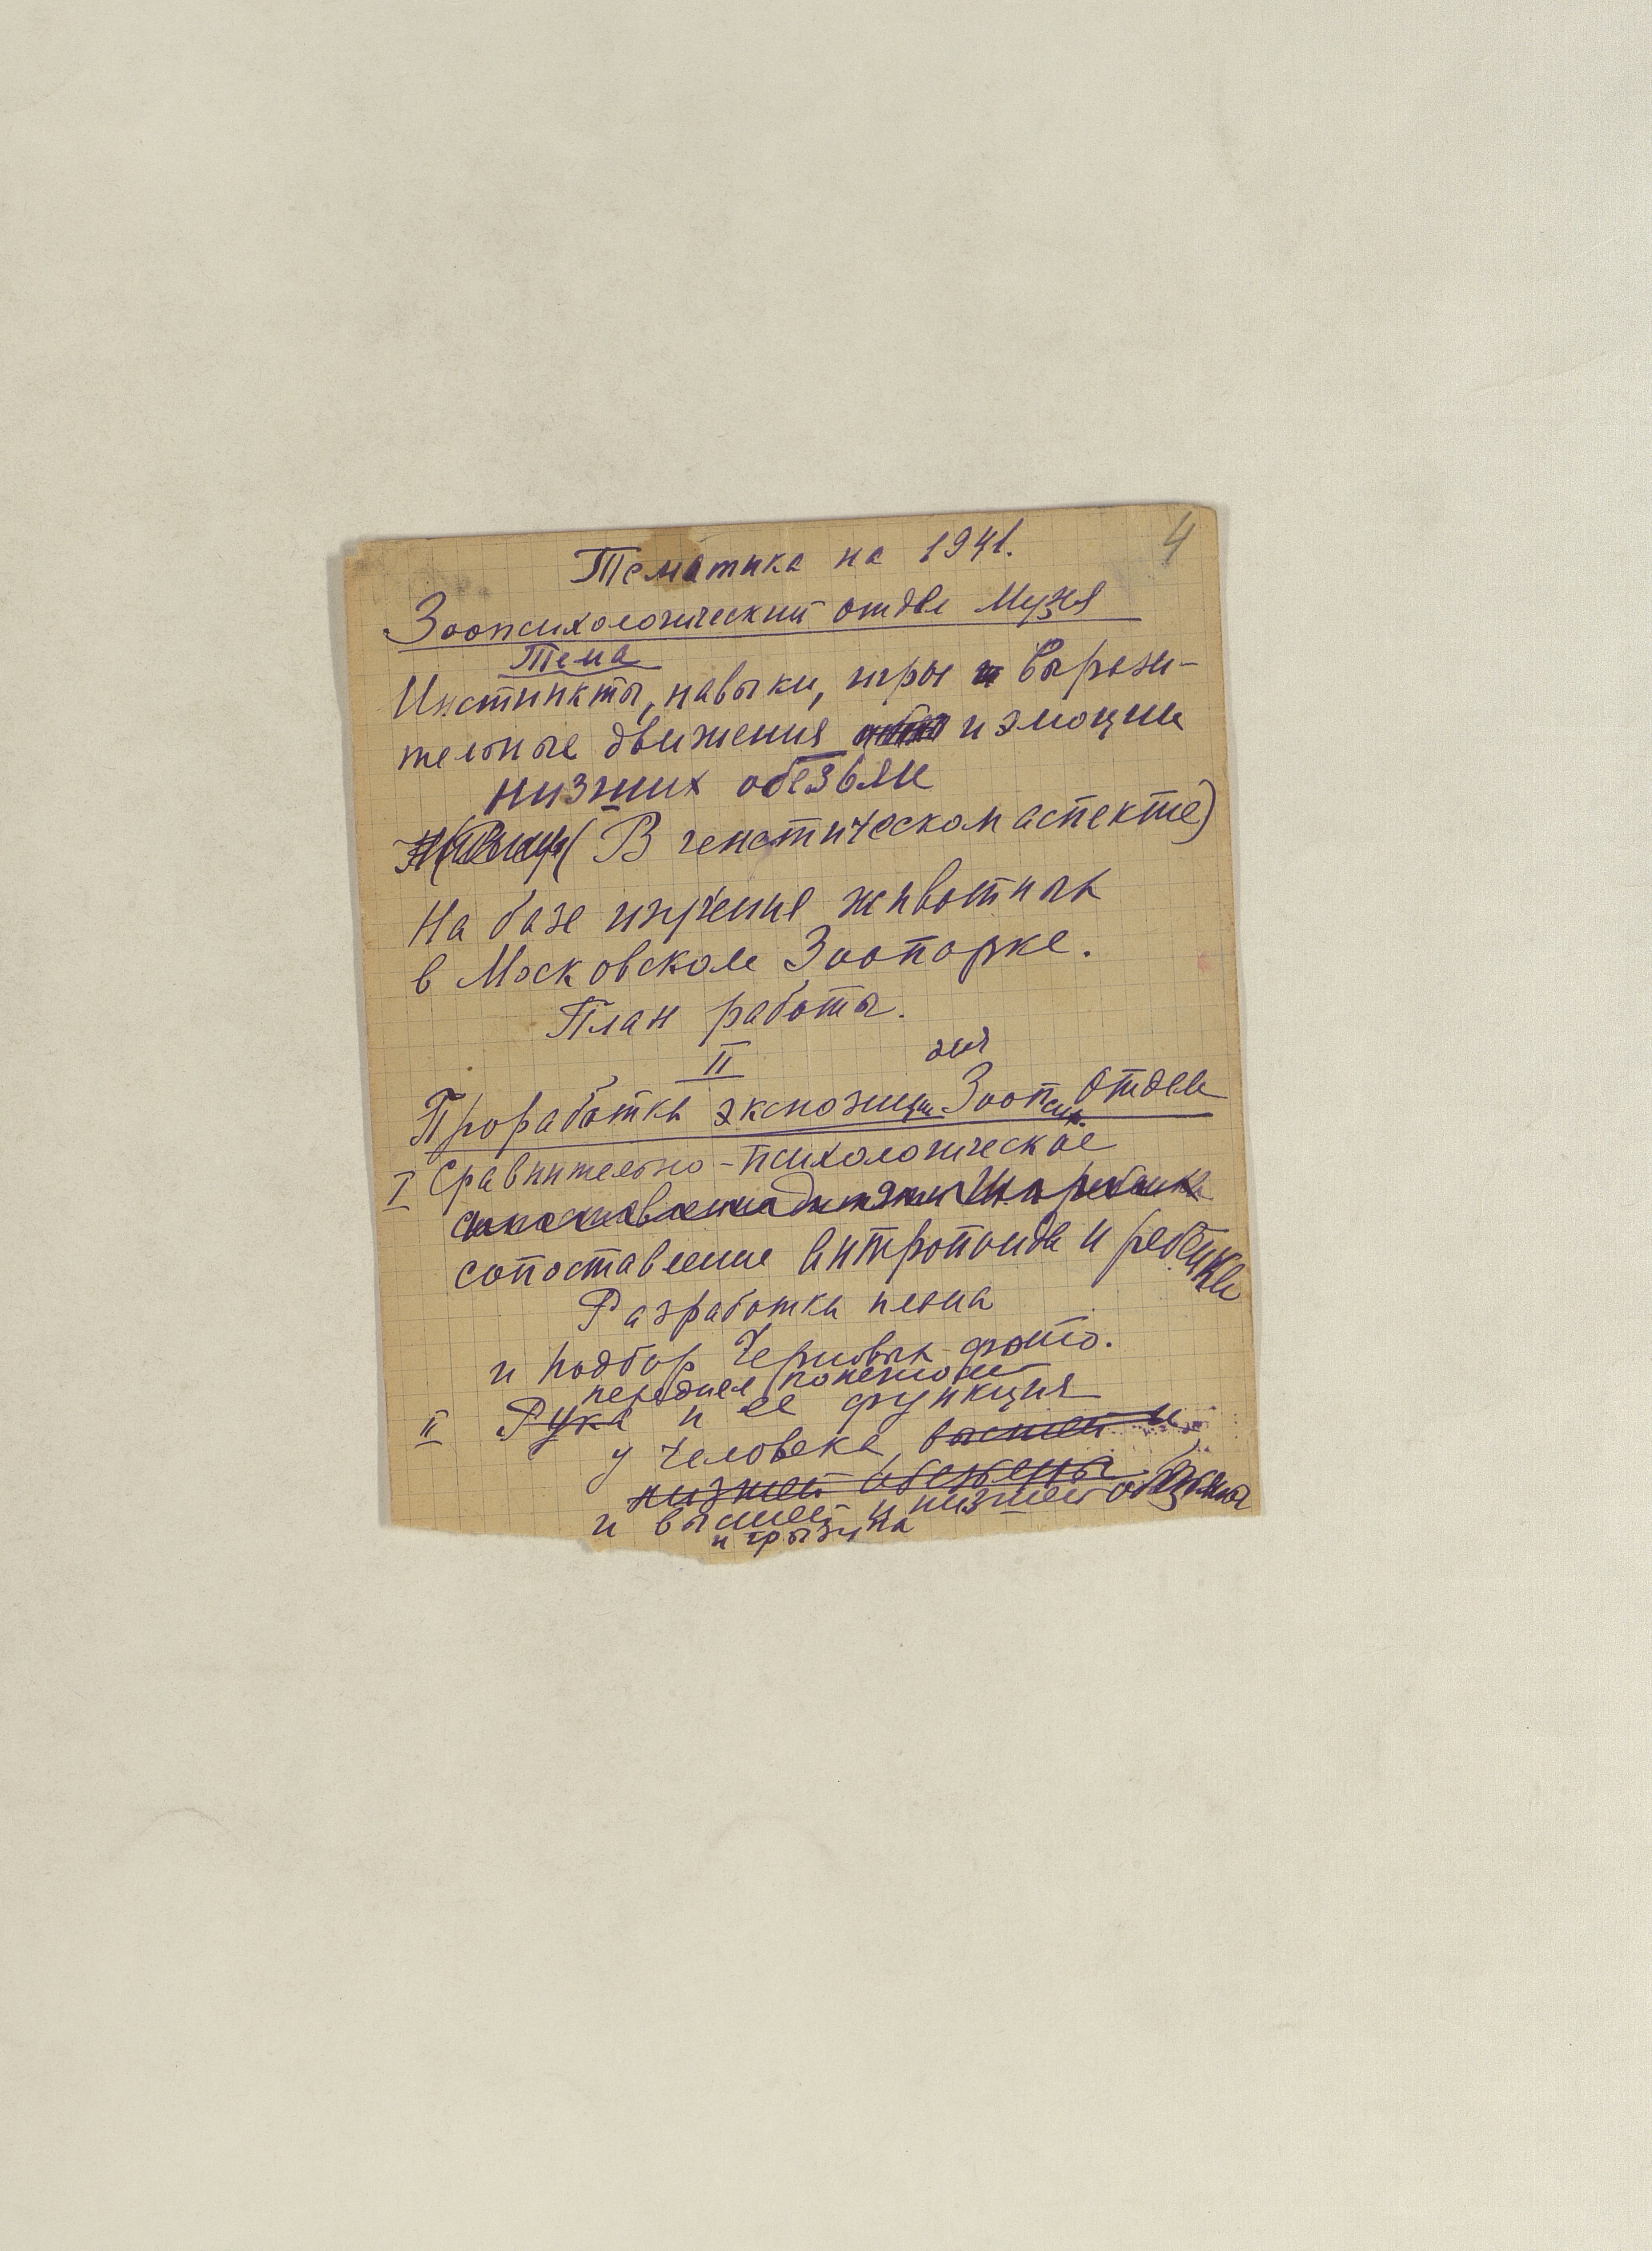 4
Тематика на 1941.
Зоопсихологический отдел Музея
Тема
Инстинкты, навыки, игры и вырази-
тельные движения и эмоции
низших обезьян
(В генетическом аспекте)
На базе изучения животных
в Московском Зоопарке.
План работы.
II
для
Проработка экспозиции Зоопсих. Отдела
I Сравнительно-психологическое
сопоставление антропоида и ребенка
Разработка плана
и подбор черновых фото.
передняя конечность
II Рука и ее функция
у человека, высшей и
низшей обезьяны
и высшей и низшей обезьяны
и грызуна